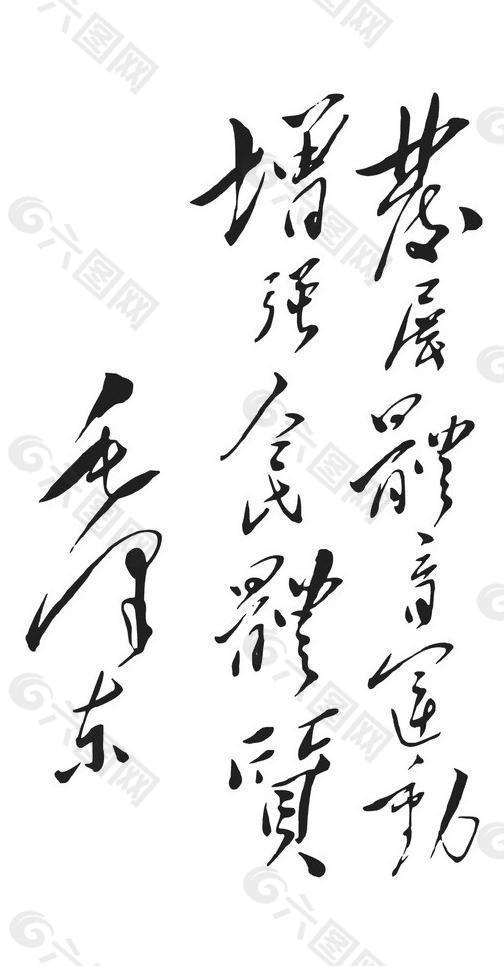 發展體育運動
增強人民體質
毛澤东
六图网